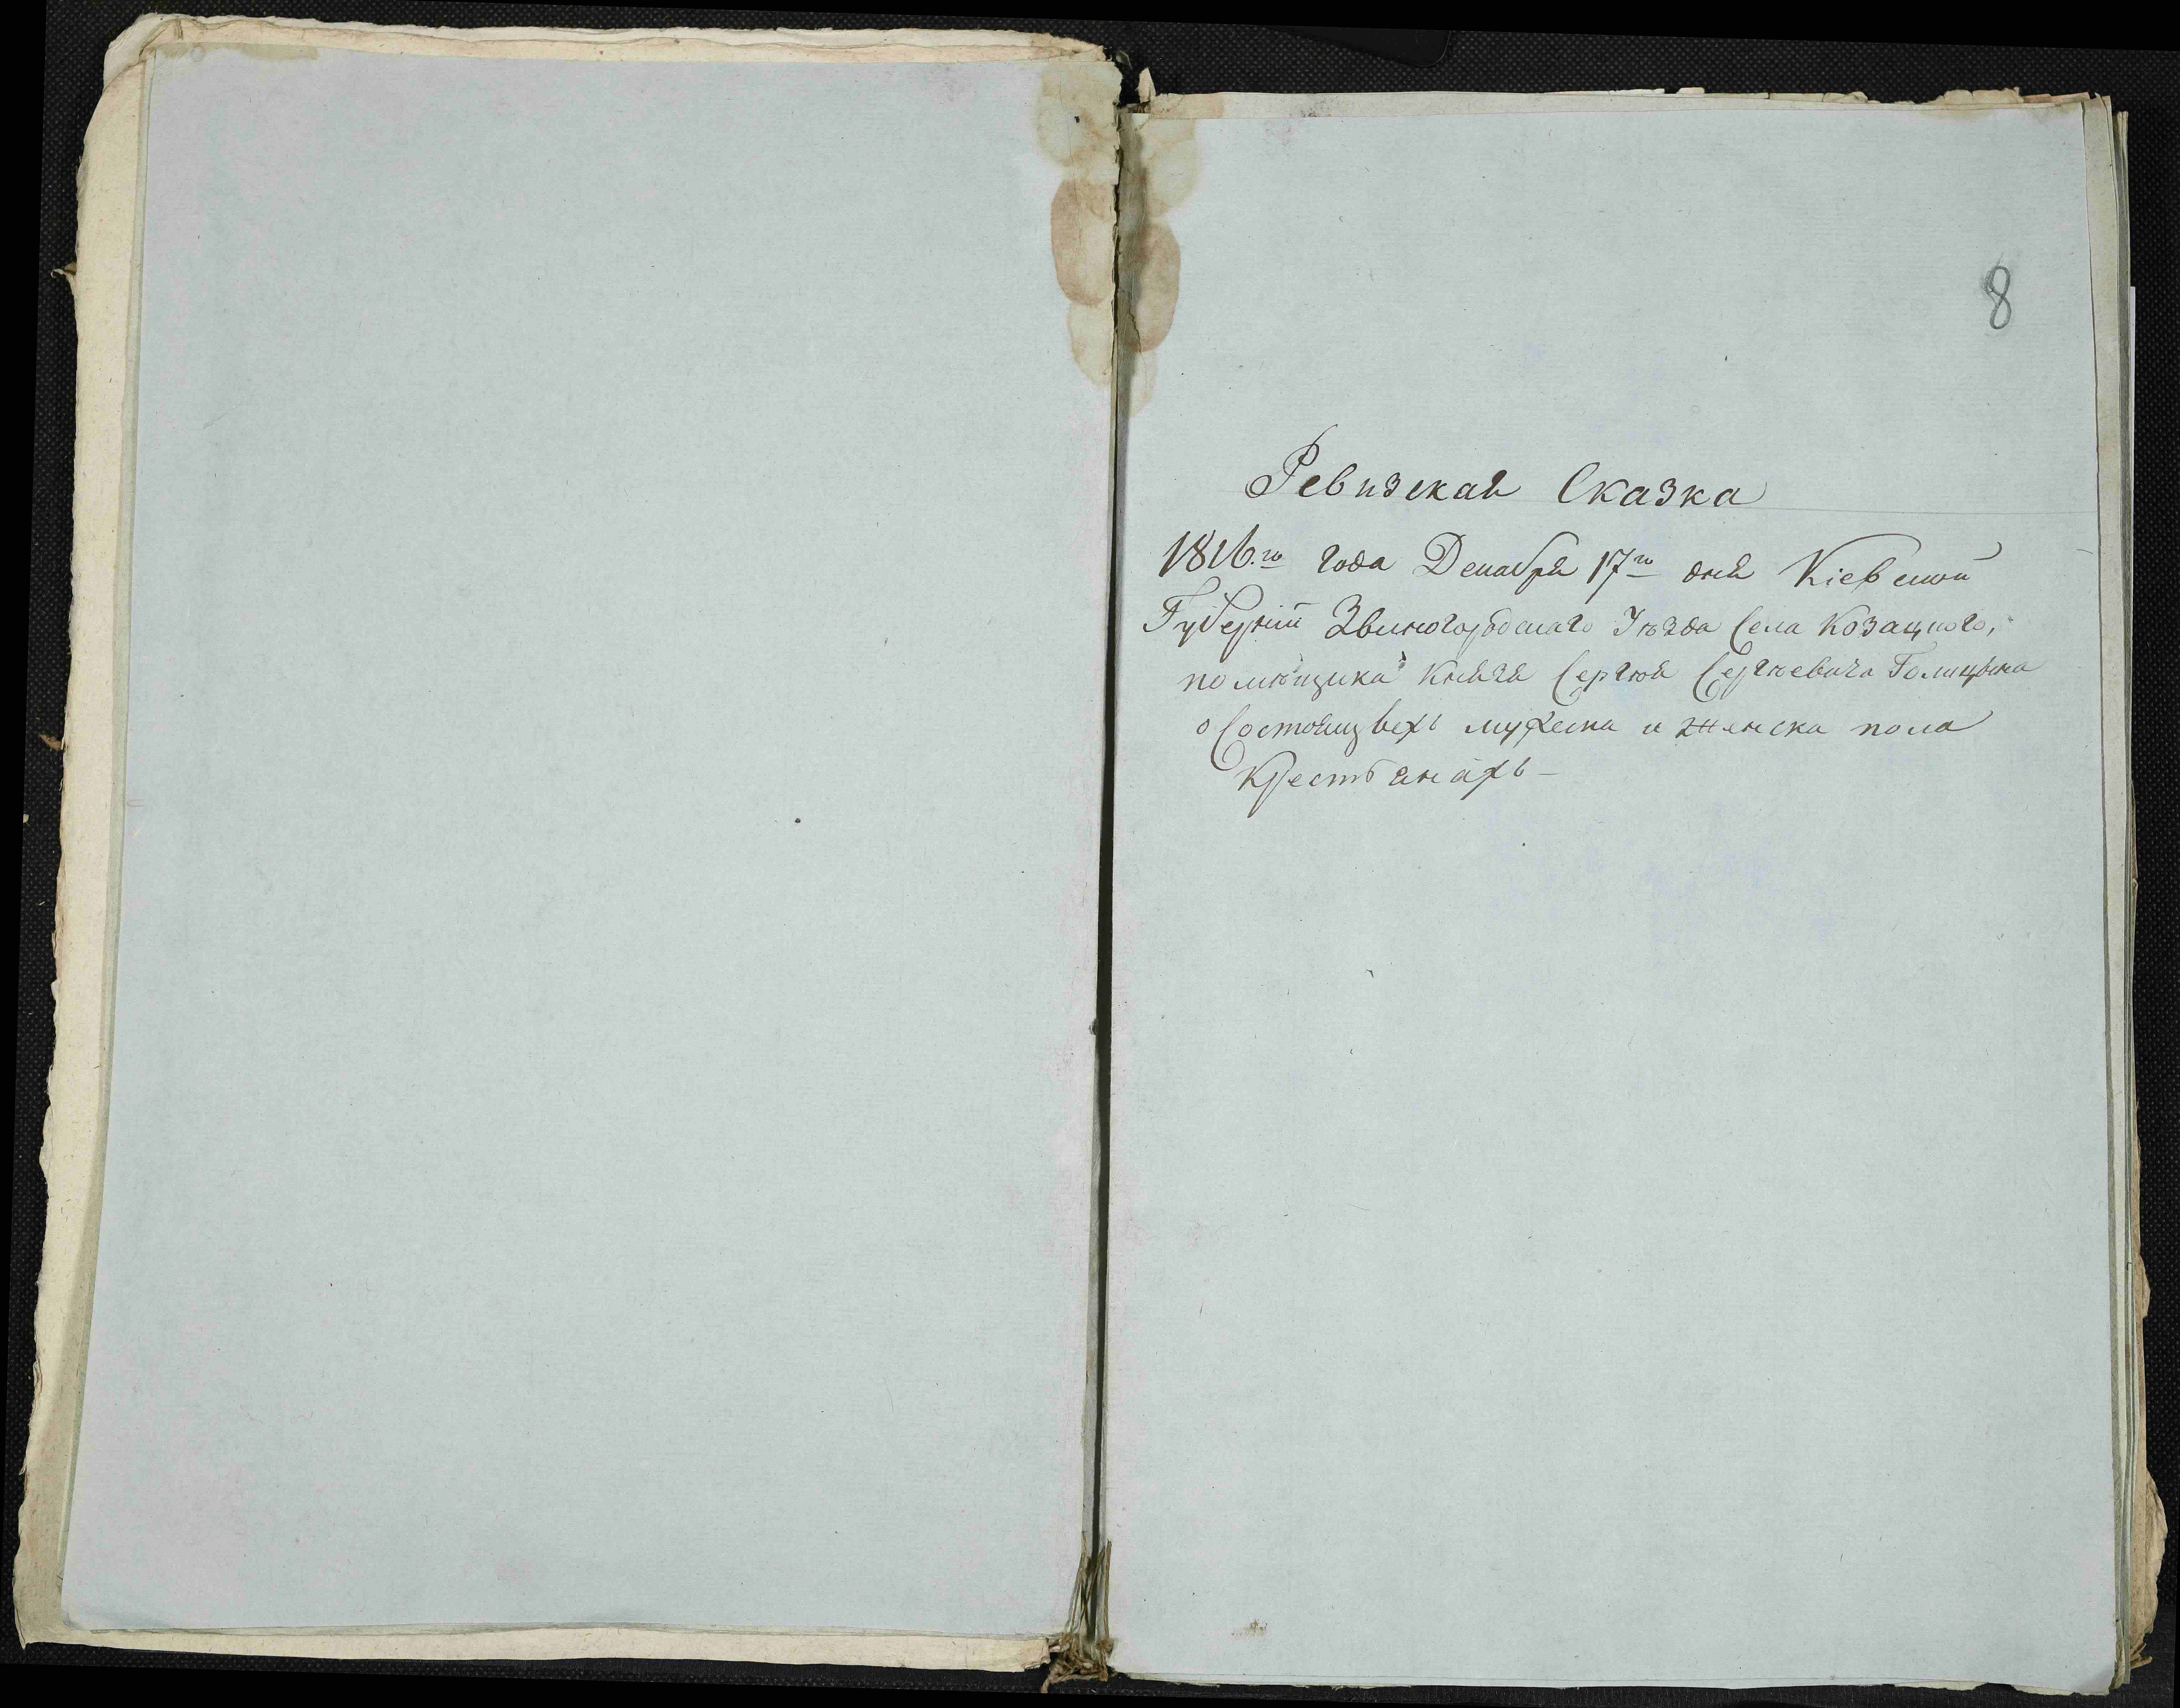 8
Ревизская Сказка
1816.го года Декабря 17го дня Кіевской
Губерніи Звиногородскаго Уѣзда Села Козацкого,
помѣщика Князя Сергѣя Сергѣевича Голицына
о Состоящихъ мужеска и женска пола
Крестьянахъ —